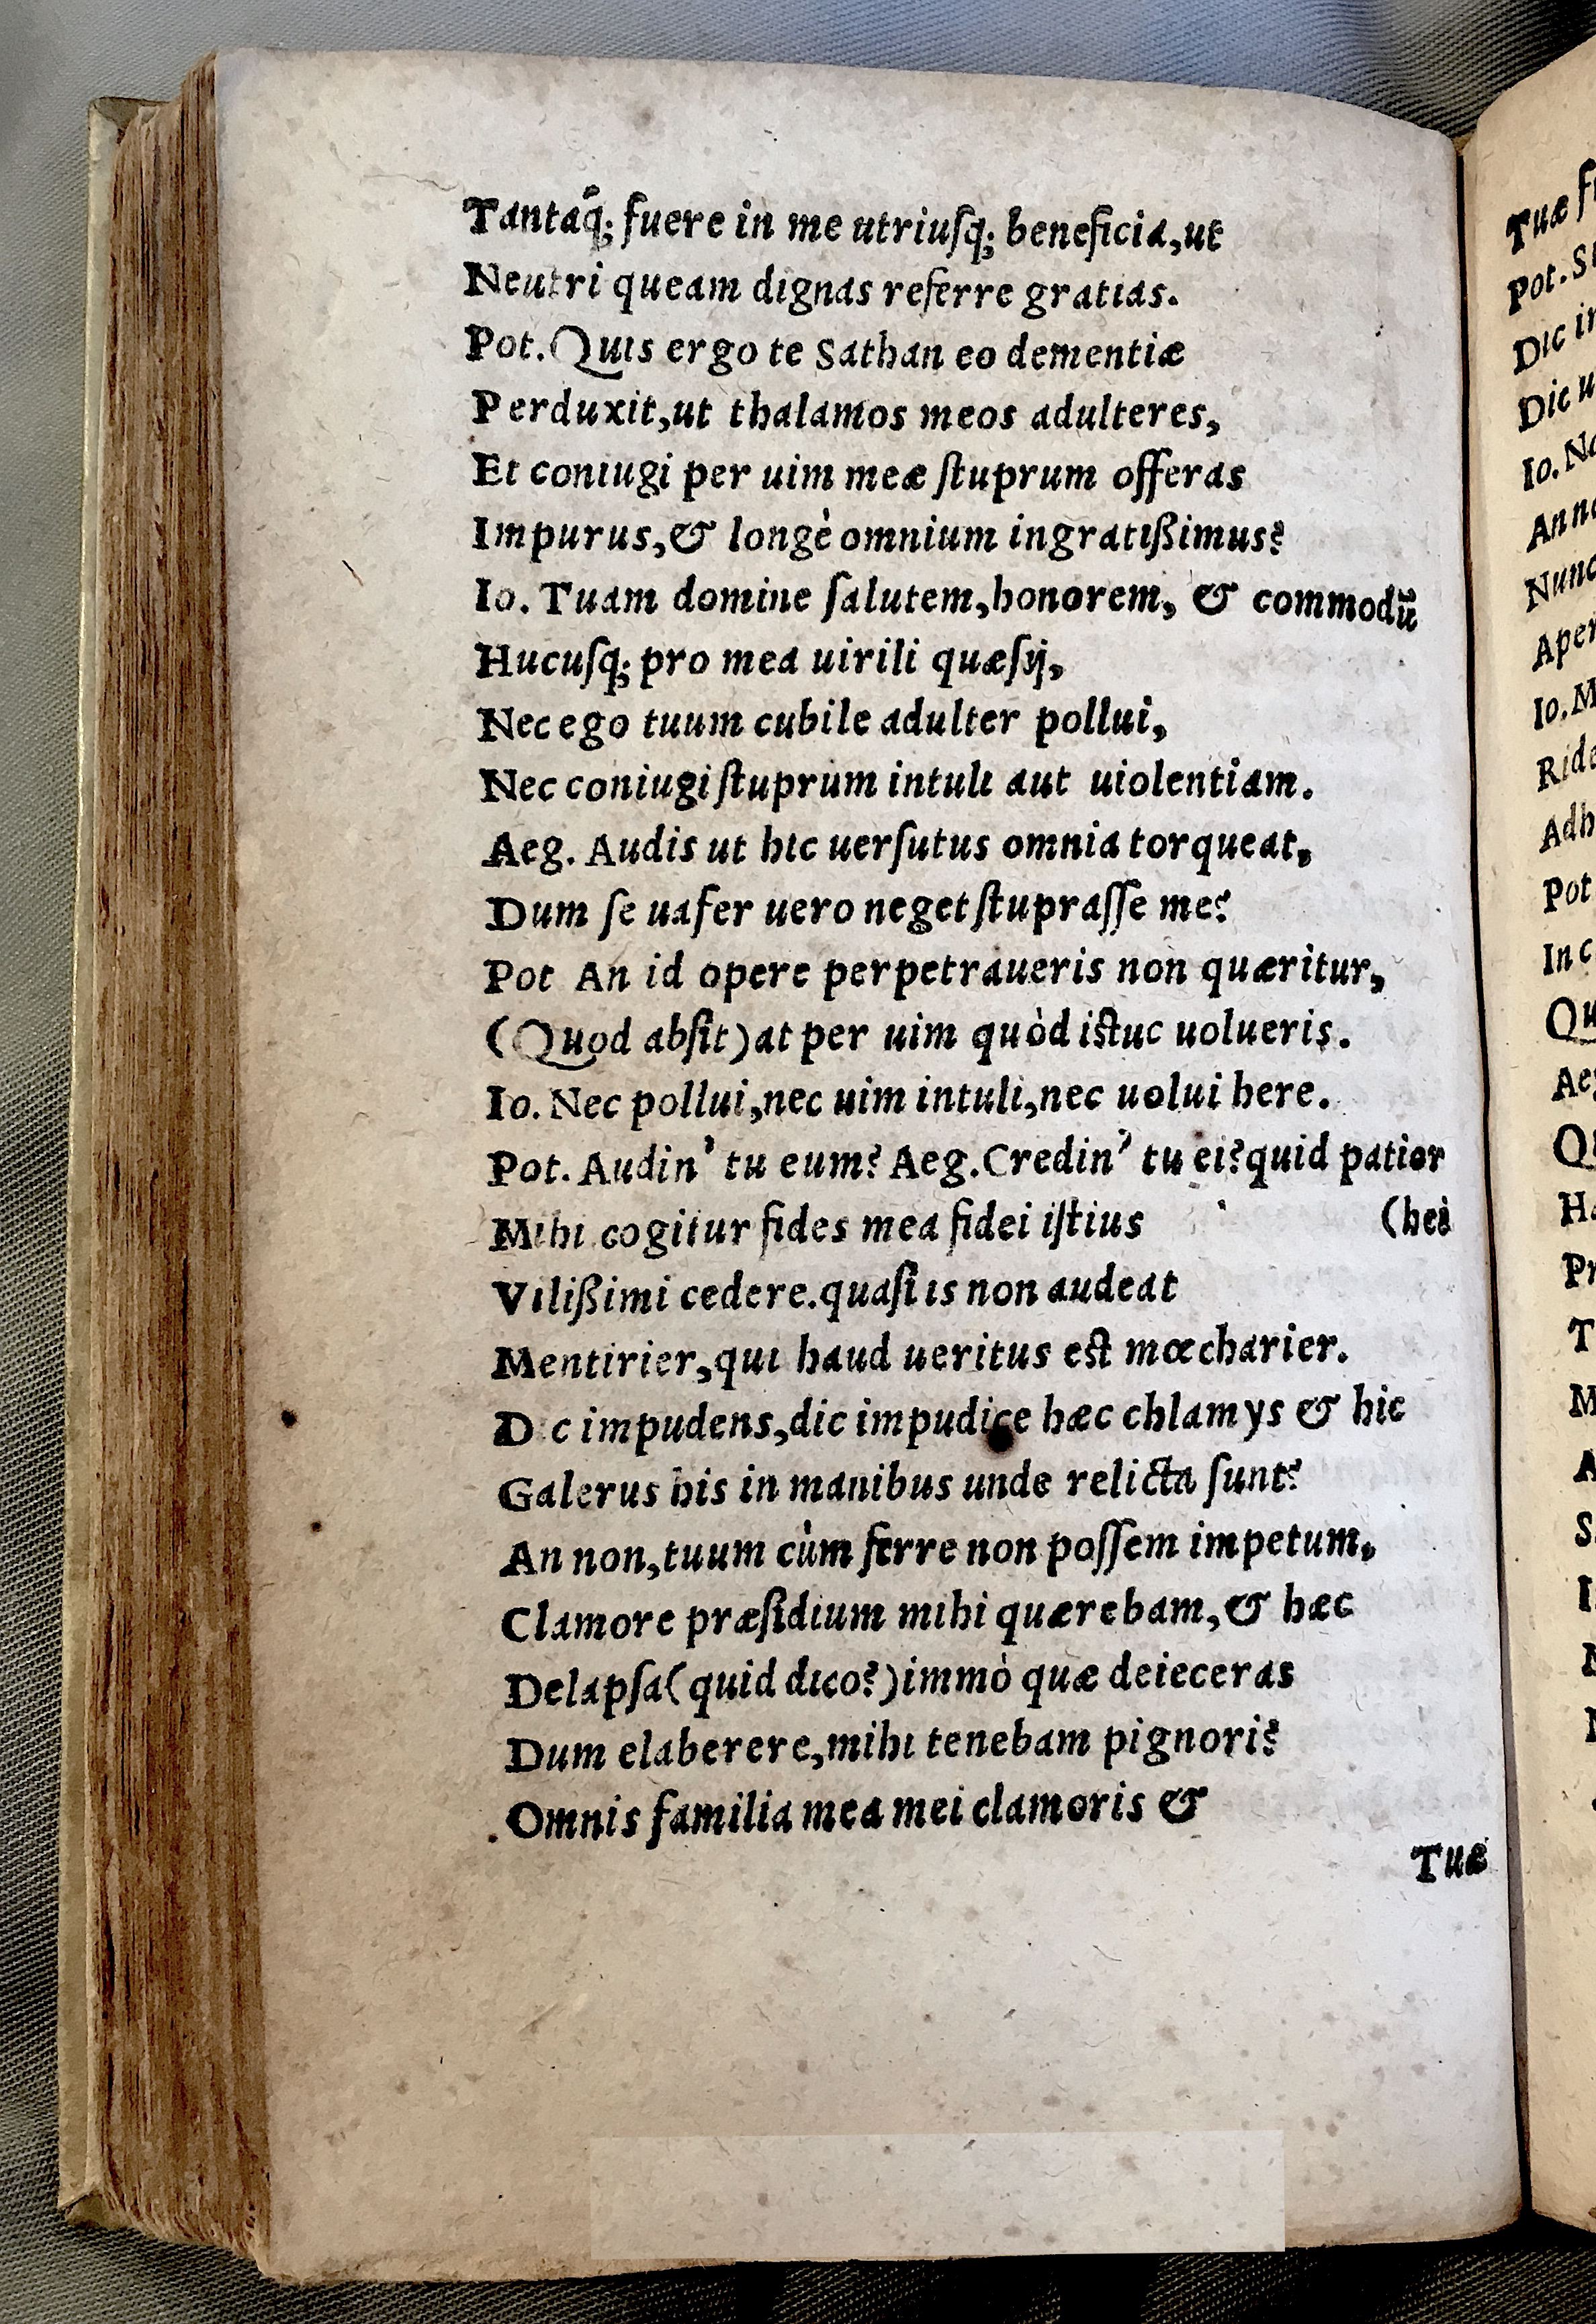 Tantáq; fuere in me utriuſq; beneficia,ut
Neutri queam dignas referre gratias.
Pot. Quis ergo te Sathan eo dementiæ
Perduxit,ut thalamos meos adulteres,
Et coniugi per uim meæ ſtuprum offeras
Impurus,& longè omnium ingratißimus?
Io. Tuam domine ſalutem,honorem, & commodū
Hucuſq; pro mea uirili quæſij,
Nec ego tuum cubile adulter pollui,
Nec coniugi ſtuprum intuli aut uiolentiam.
Aeg. Audis ut hic uerſutus omnia torqueat,
Dum ſe uafer uero neget ſtupraſſe me?
Pot An id opere perpetraueris non quæritur,
(Quod abſit)at per uim quòd iſtuc uolueris.
Io. Nec pollui,nec uim intuli,nec uolui here.
Pot. Audin' tu eum? Aeg. Credin' tu ei?quid patior
Mihi cogitur fides mea fidei iſtius (hei
Vilißimi cedere.quaſi is non audeat
Mentirier,qui haud ueritus eſt mœcharier.
Dic impudens,dic impudice hæc chlamys & hic
Galerus his in manibus unde relicta ſunt?
An non,tuum cùm ferre non poſſem impetum,
Clamore præſidium mihi quærebam,& hæc
Delapſa(quid dico?)immò quæ deieceras
Dum elaberere,mihi tenebam pignori?
Omnis familia mea mei clamoris &
Tuæ
Tuæ
Pot.
Dic
Dic
Io.
Nunc
Io.
Pot
In
Aeg